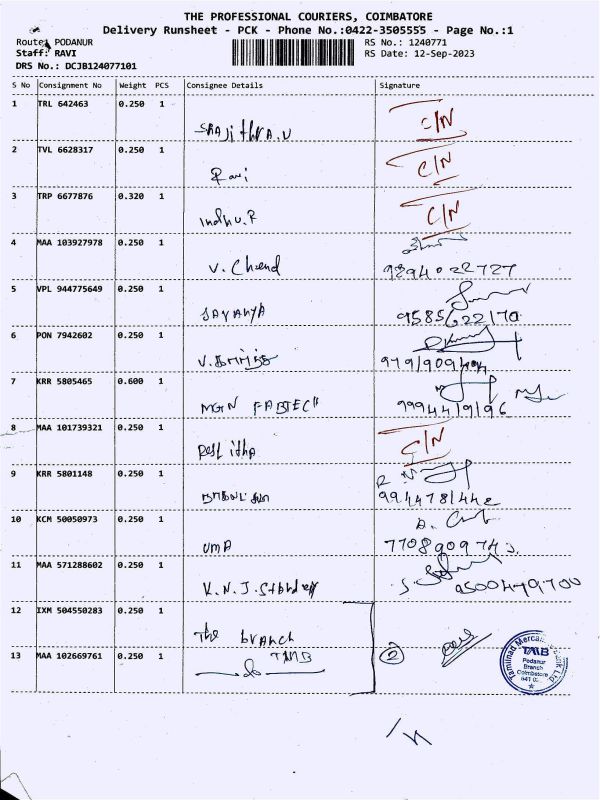 THE PROFESSIONAL COURIERS, COIMBATORE
Delivery Runsheet - PCK - Phone No.:0422-3505555 - Page No.:1
Route: PODANUR RS No.: 1240771
Staff: RAVI RS Date: 12-Sep-2023
DRS No.: DCJB124077101
S No Consignment No Weight PCS Consignee Details Signature
1 TRL 642463 0.250 1 C/N
2 TVL 6628317 0.250 1 Ravi C/N
3 TRP 6677876 0.320 1 Indhu.R C/N
4 MAA 103927978 0.250 1 V. Chand 9894022727
5 VPL 944775649 0.250 1 SARANYA 9585622170
6 PON 7942602 0.250 1
7 KRR 5805465 0.600 1 MGN FABTECH 9994419196
8 MAA 101739321 0.250 1 C/N
9 KRR 5801148 0.250 1 9944781442
10 KCM 50050973 0.250 1 UMA
11 MAA 571288602 0.250 1 K.N.J. 9500479700
12 IXM 504550283 0.250 1 The branch
TMB
13 MAA 102669761 0.250 1 do 2
Tamilnad Mercantile Bank Ltd
TMB
Podanur
Branch
Coimbatore